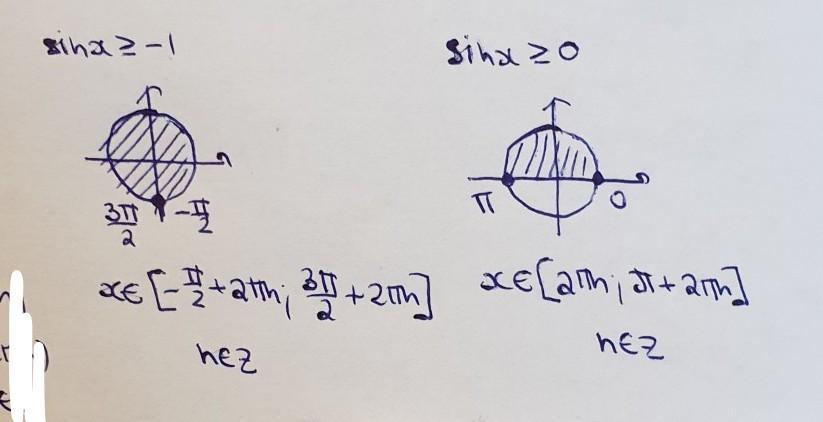 sinx ≥ -1
3π/2 -π/2
x∈[-π/2+2πn; 3π/2+2πn]
n∈Z
sinx ≥ 0
π 0
x∈[2πn; π+2πn]
n∈Z